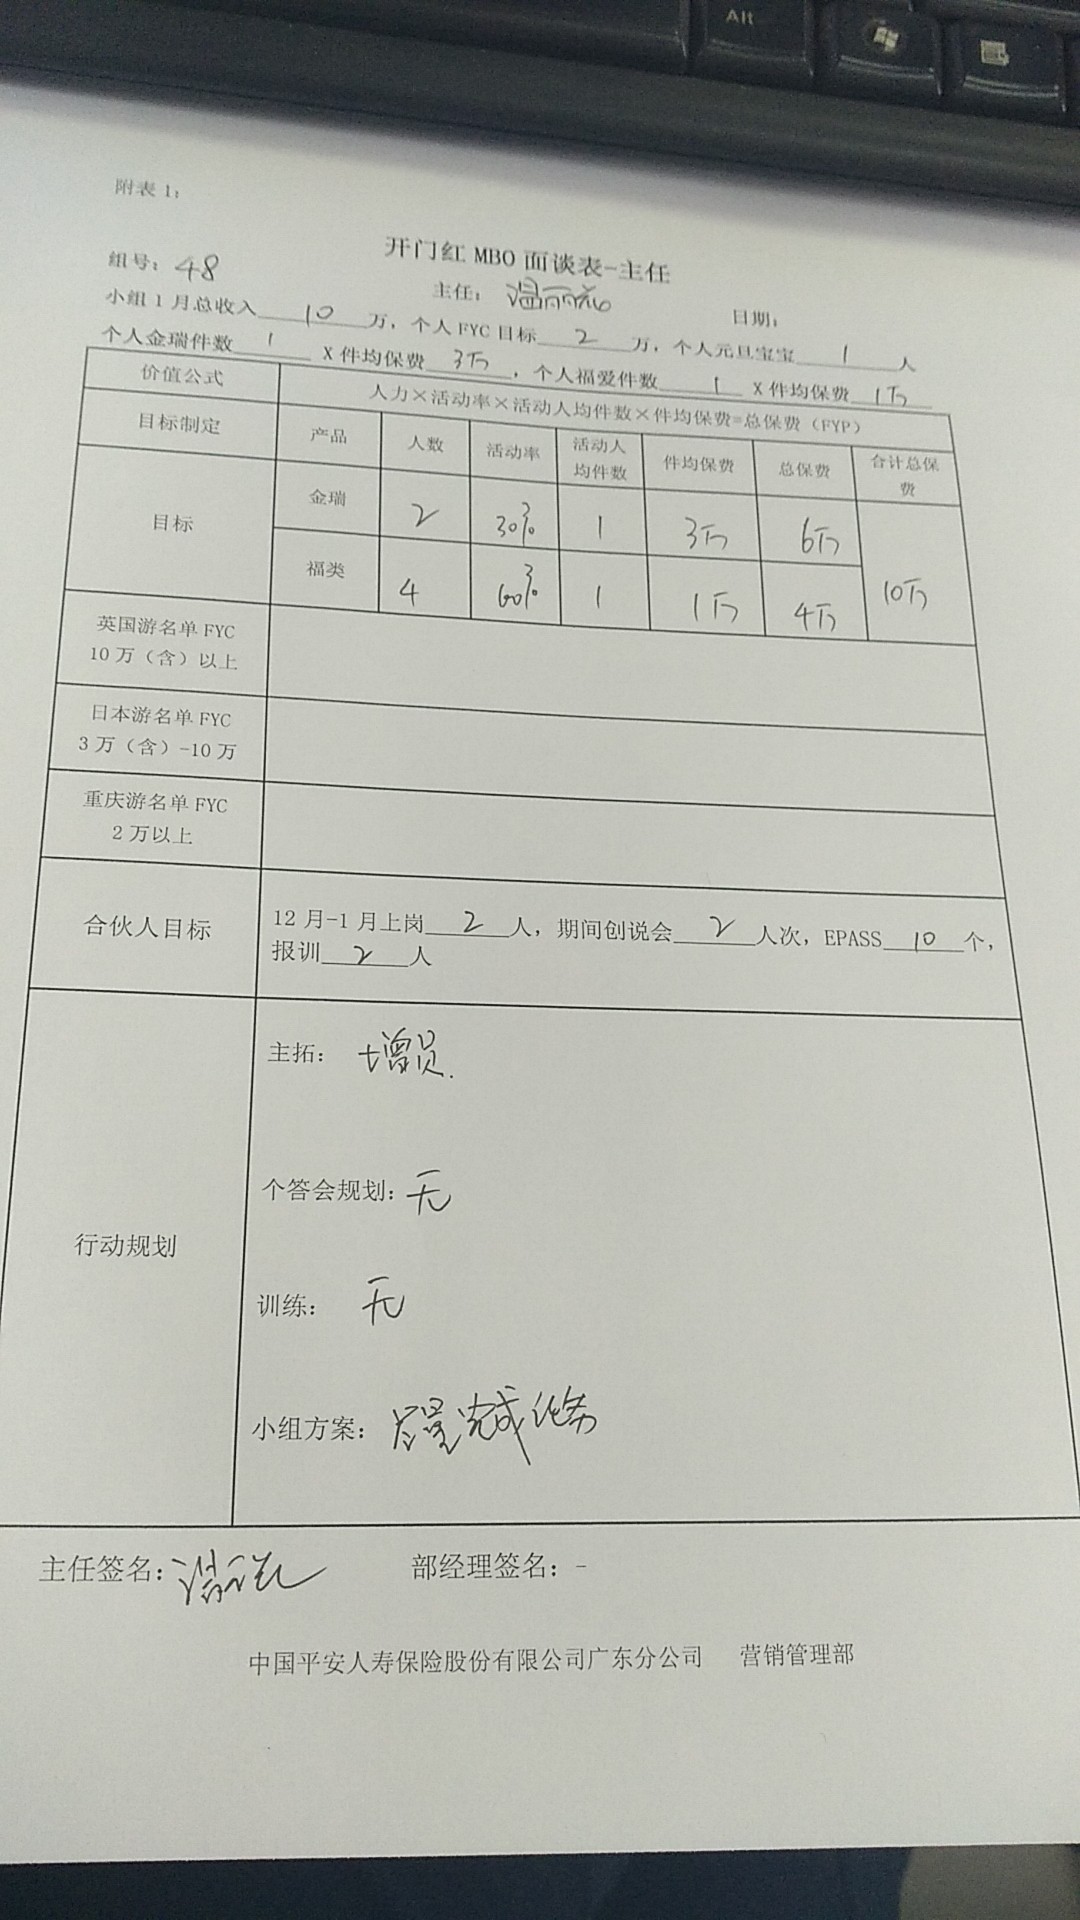 Alt
附表 1:
开门红 MBO 面谈表-主任
组号: 48 主任: 日期:
小组 1 月总收入 10 万, 个人 FYC 目标 2 万, 个人元旦宝宝 1 人
个人金瑞件数 1 X 件均保费 3万 , 个人福爱件数 1 X 件均保费 1万
价值公式 人力×活动率×活动人均件数×件均保费=总保费（FYP）
目标制定 产品 人数 活动率 活动人均件数 件均保费 总保费 合计总保费
目标 金瑞 2 30% 1 3万 6万 10万
福类 4 60% 1 1万 4万
英国游名单 FYC
10 万（含）以上
日本游名单 FYC
3 万（含）-10 万
重庆游名单 FYC
2 万以上
合伙人目标 12 月-1 月上岗 2 人, 期间创说会 2 人次, EPASS 10 个,
报训 2 人
行动规划
主拓: 增员.
个答会规划: 无
训练: 无
小组方案: 尽量完成任务
主任签名: 部经理签名: -
中国平安人寿保险股份有限公司广东分公司 营销管理部